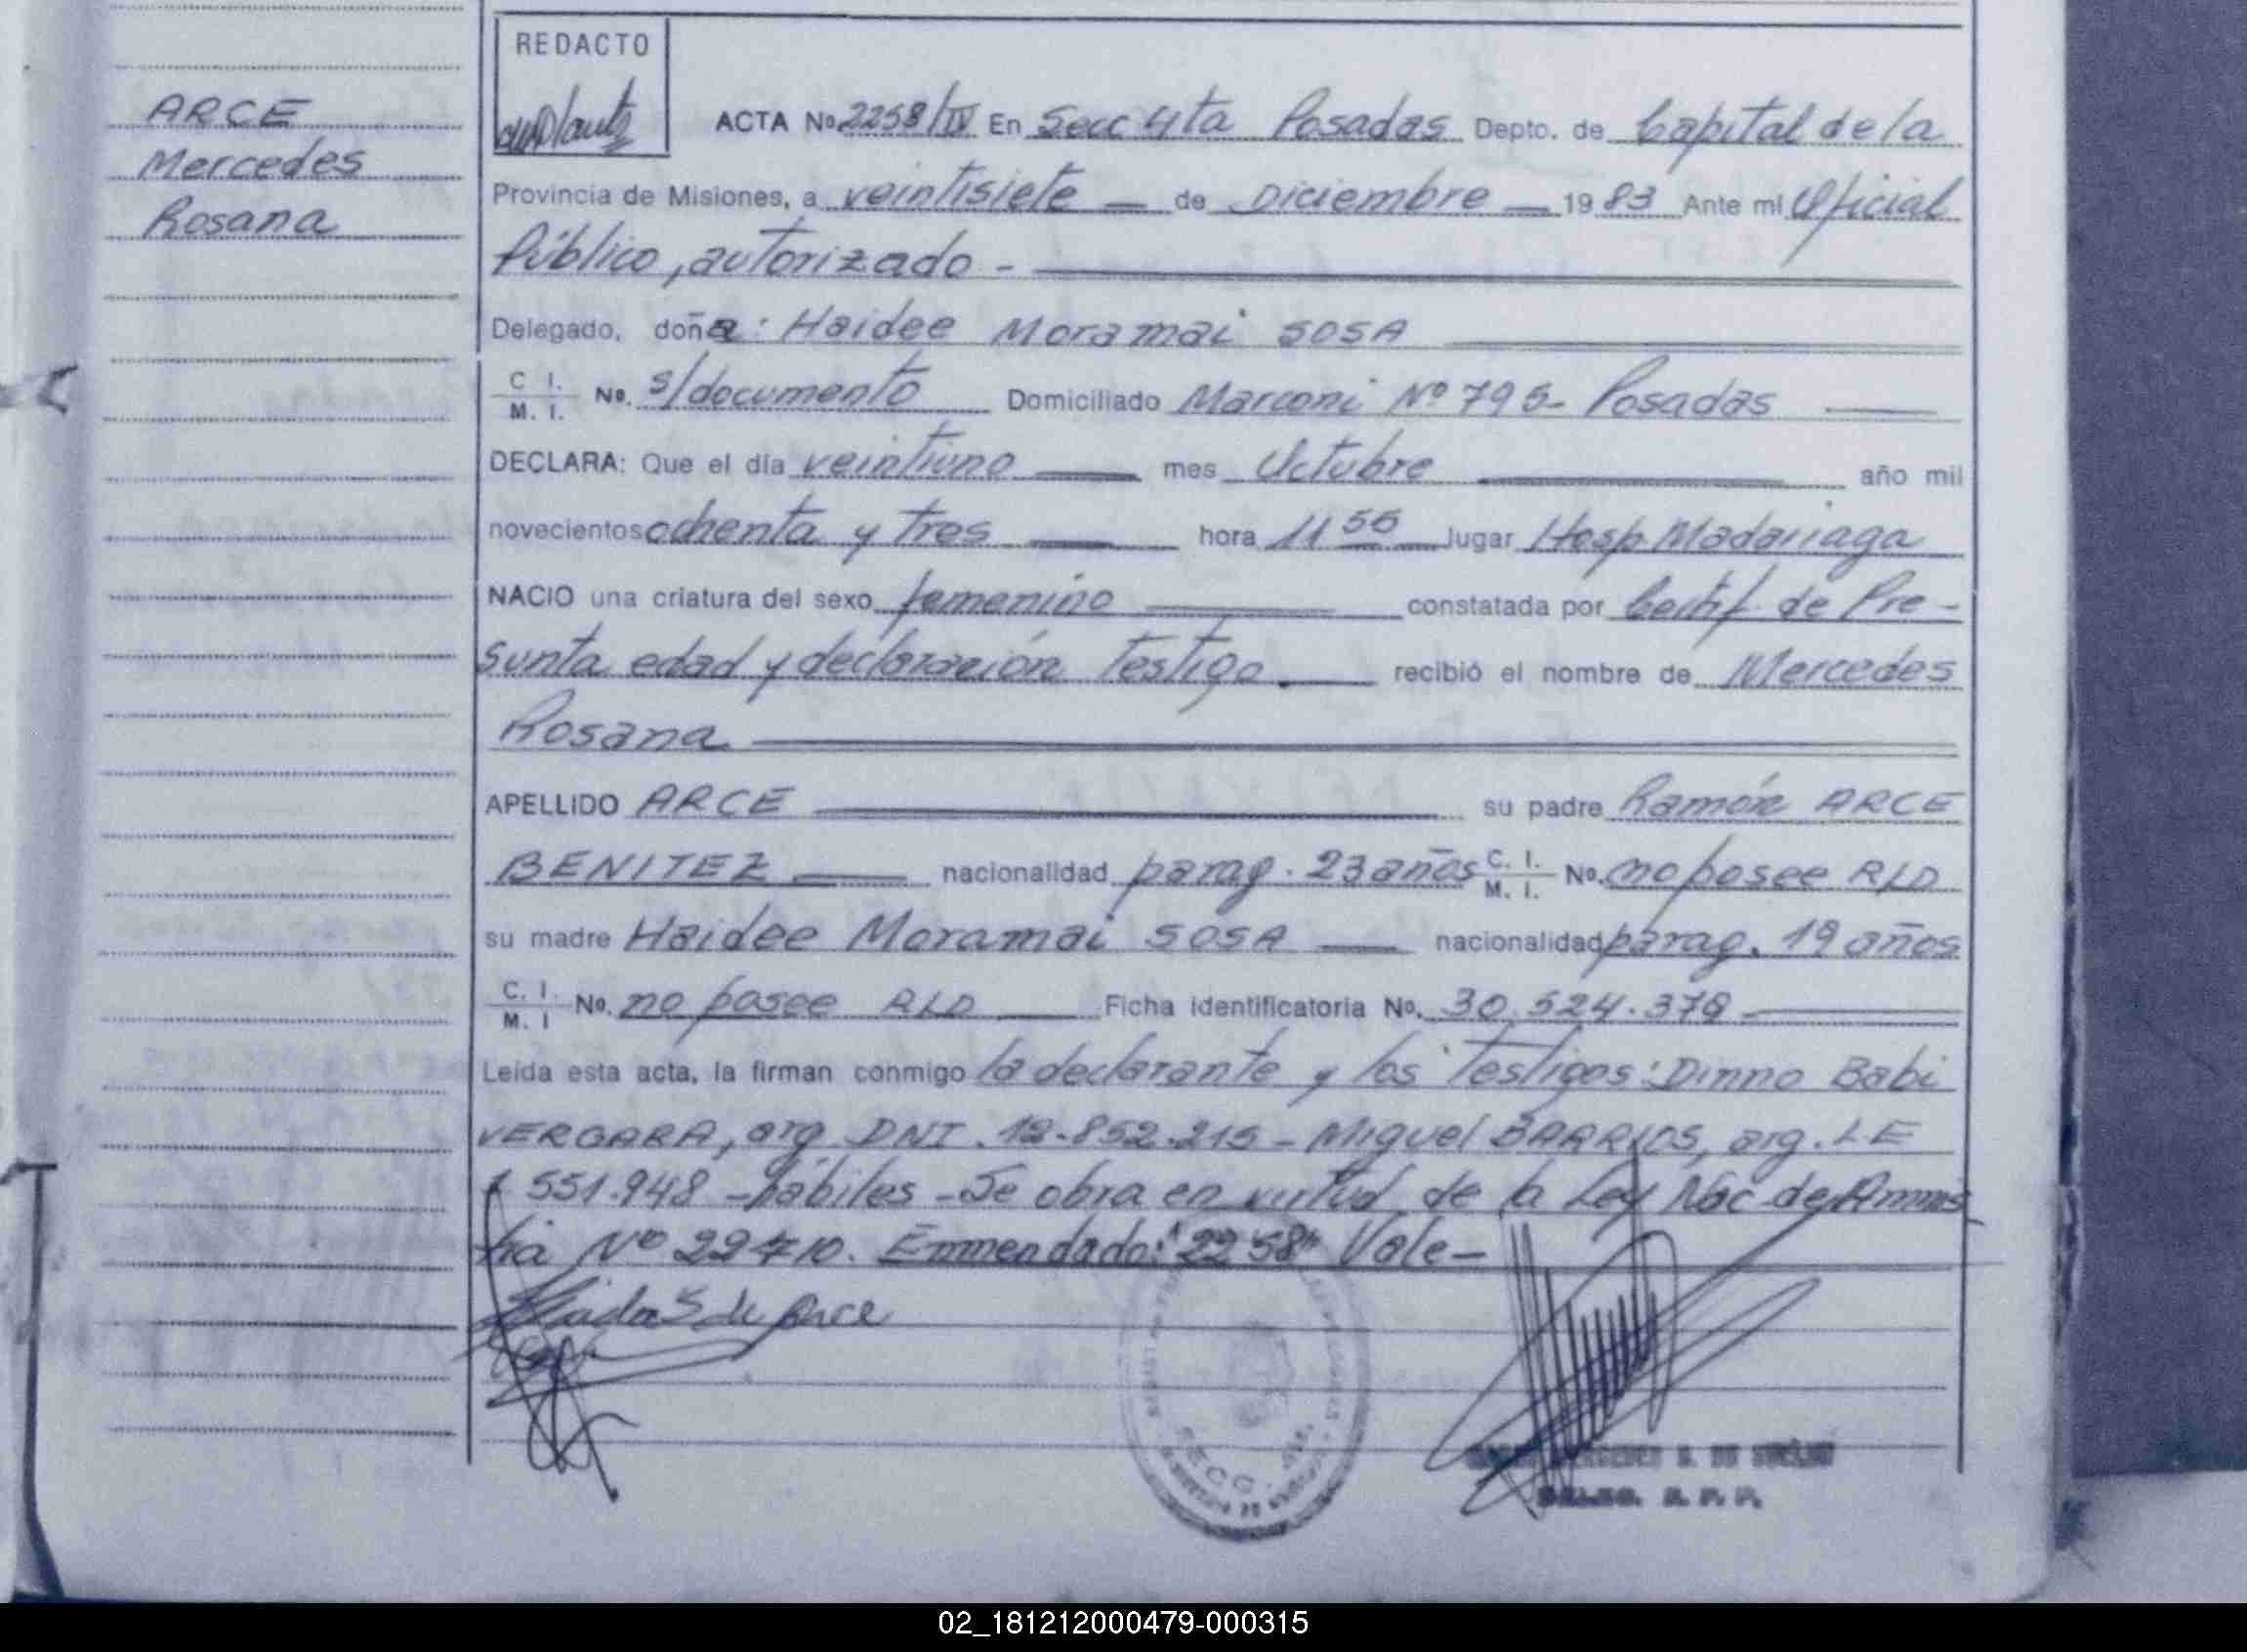 REDACTO
ARCE
Mercedes
Rosana
ACTA No 2258/IV En Secc 4ta Posadas Depto. de Capital de la
Provincia de Misiones, a veintisiete — de Diciembre — 1983 Ante mi Oficial
Público, autorizado -
Delegado, doña: Haidee Moramai SOSA
C I. / M. I. No. s/documento Domiciliado Marconi Nº 795- Posadas
DECLARA: Que el día veintiuno mes Octubre año mil
novecientos ochenta y tres hora 11 55 lugar Hosp. Madariaga
NACIO una criatura del sexo femenino constatada por Certif. de Pre-
sunta edad y declaración Testigo. recibió el nombre de Mercedes
Rosana
APELLIDO ARCE su padre Ramón ARCE
BENITEZ nacionalidad parag. 23 años C. I. / M. I. No. no posee RLD
su madre Haidee Moramai SOSA nacionalidad parag. 19 años
C. I. / M. I No. no posee RLD Ficha identificatoria No. 30.524.378
Leída esta acta, la firman conmigo la declarante y los Testigos: Dinno Babi
VERGARA, arg DNI. 18.852.215 - Miguel BARRIOS, arg. LE
551.948 - hábiles - Se obra en virtud de la Ley Nac de Amnis
tia Nº 22410. Enmendado: "2258" Vale-
S de Arce
SECC.
DELEG. R. P. P.
02_181212000479-000315